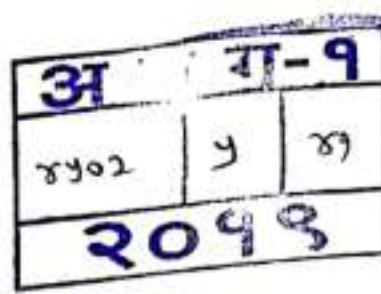 अ ग-१
४५०२ ५ ४१
२०१९